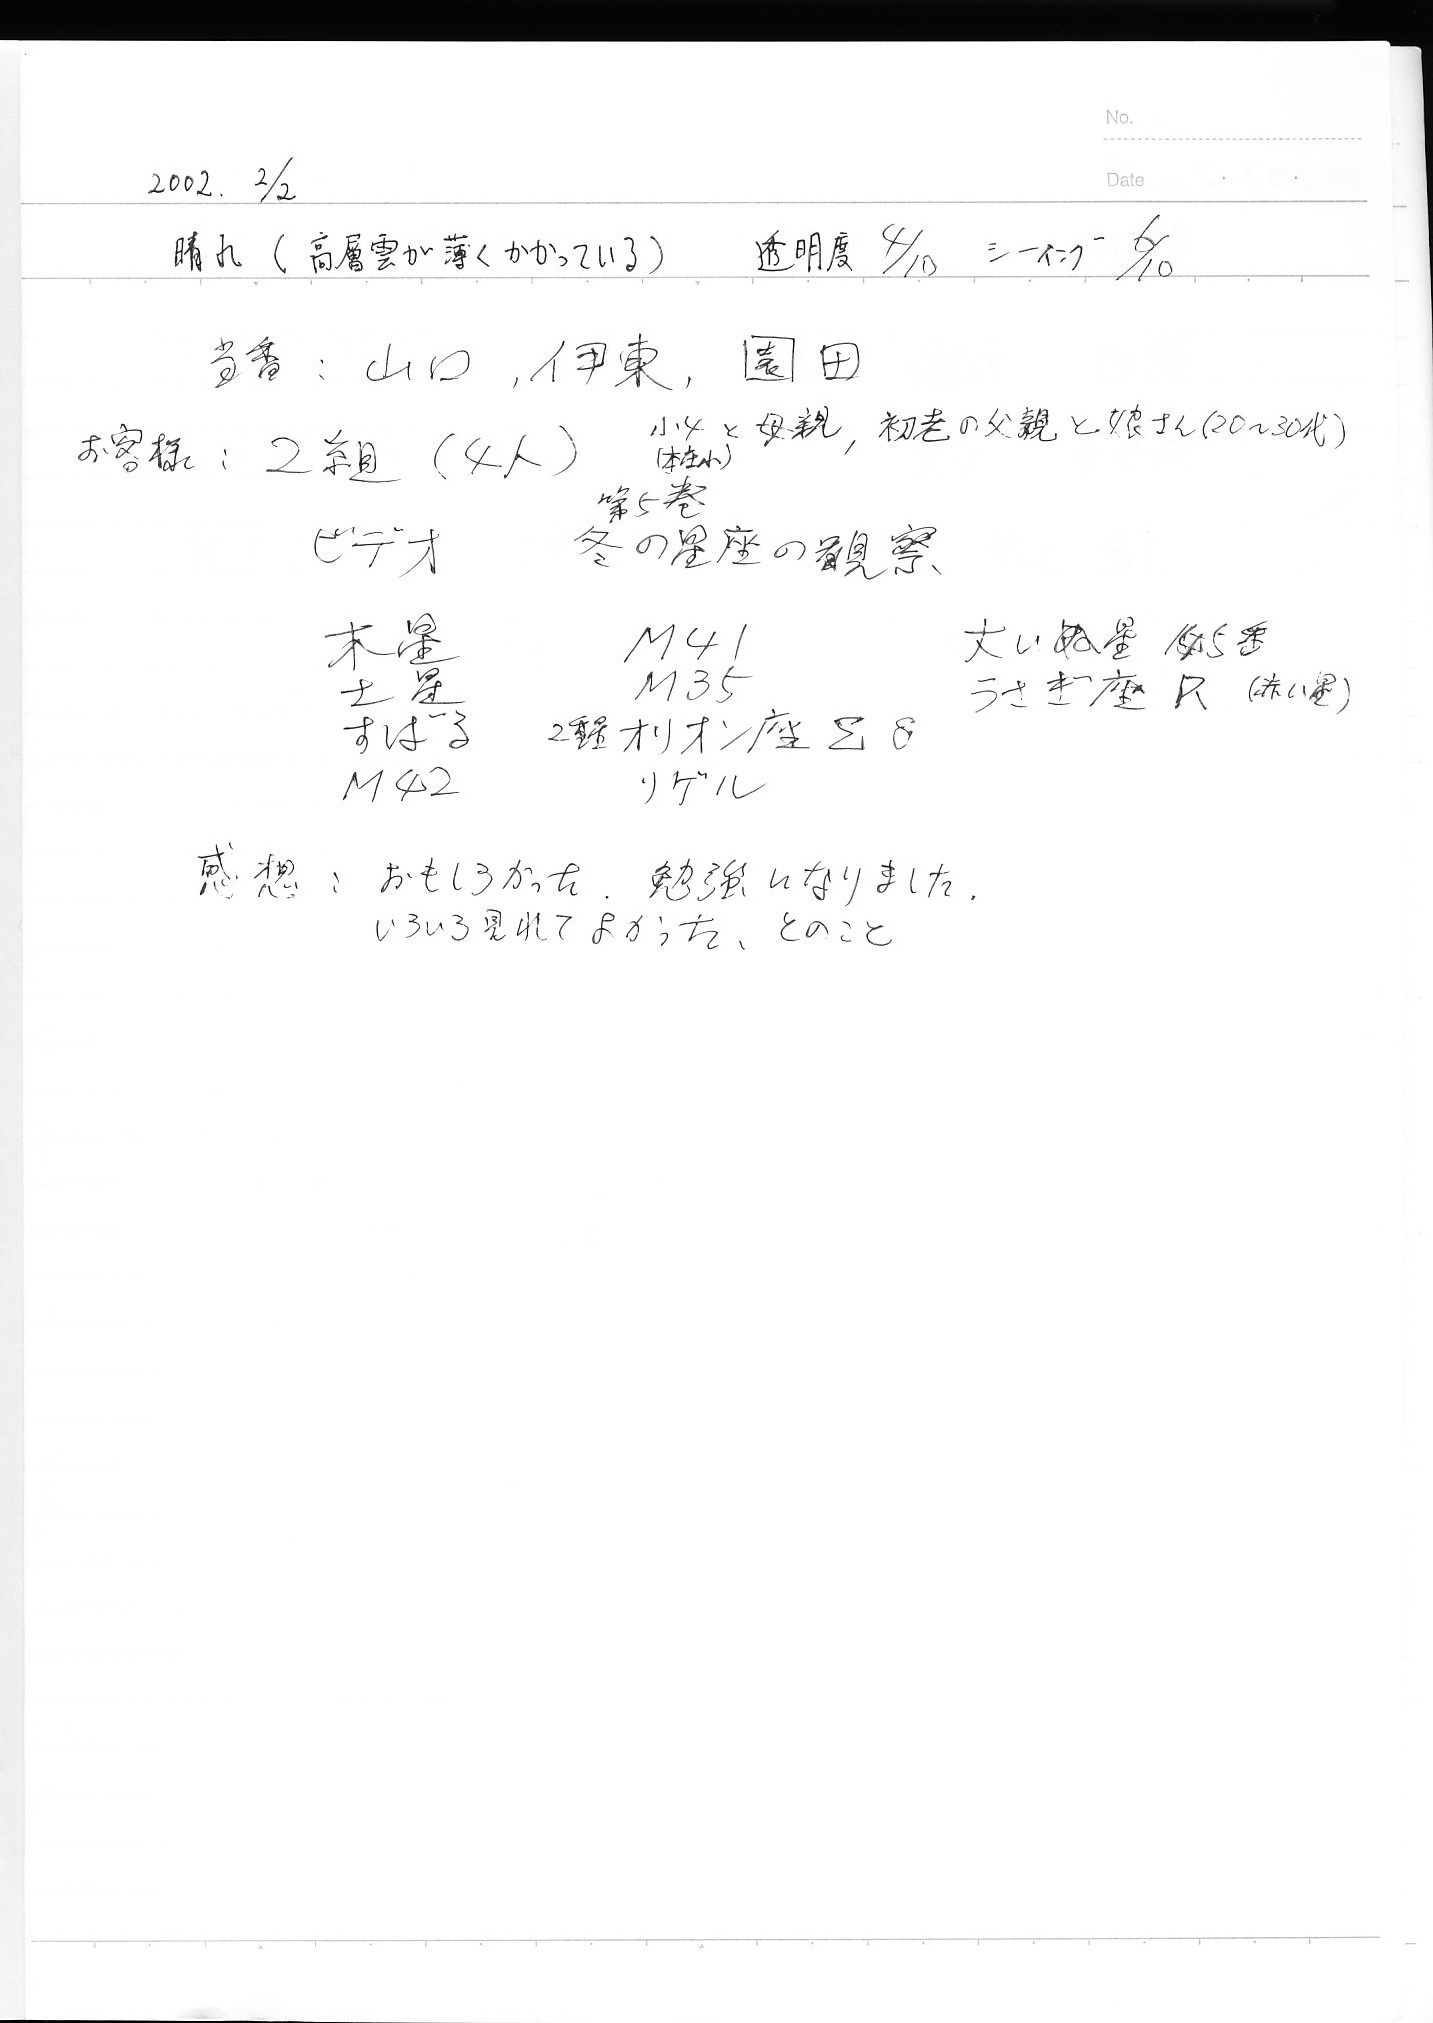 No.
Date
2002. 2/2
晴れ(高層雲が薄くかかっている) 透明度 4/10 シーイング 6/10
当番:山口,伊東,園田
お客様:2組(4人) 小4と母親,初老の父親と娘さん(20〜30代)
第5巻
ビデオ 冬の星座の観察
木星 M41
土星 M35 うさぎ座 R (赤い星)
すばる 2重星オリオン座 Σ
M42 リゲル
感想:おもしろかった.勉強になりました.
いろいろ見れてよかった、とのこと